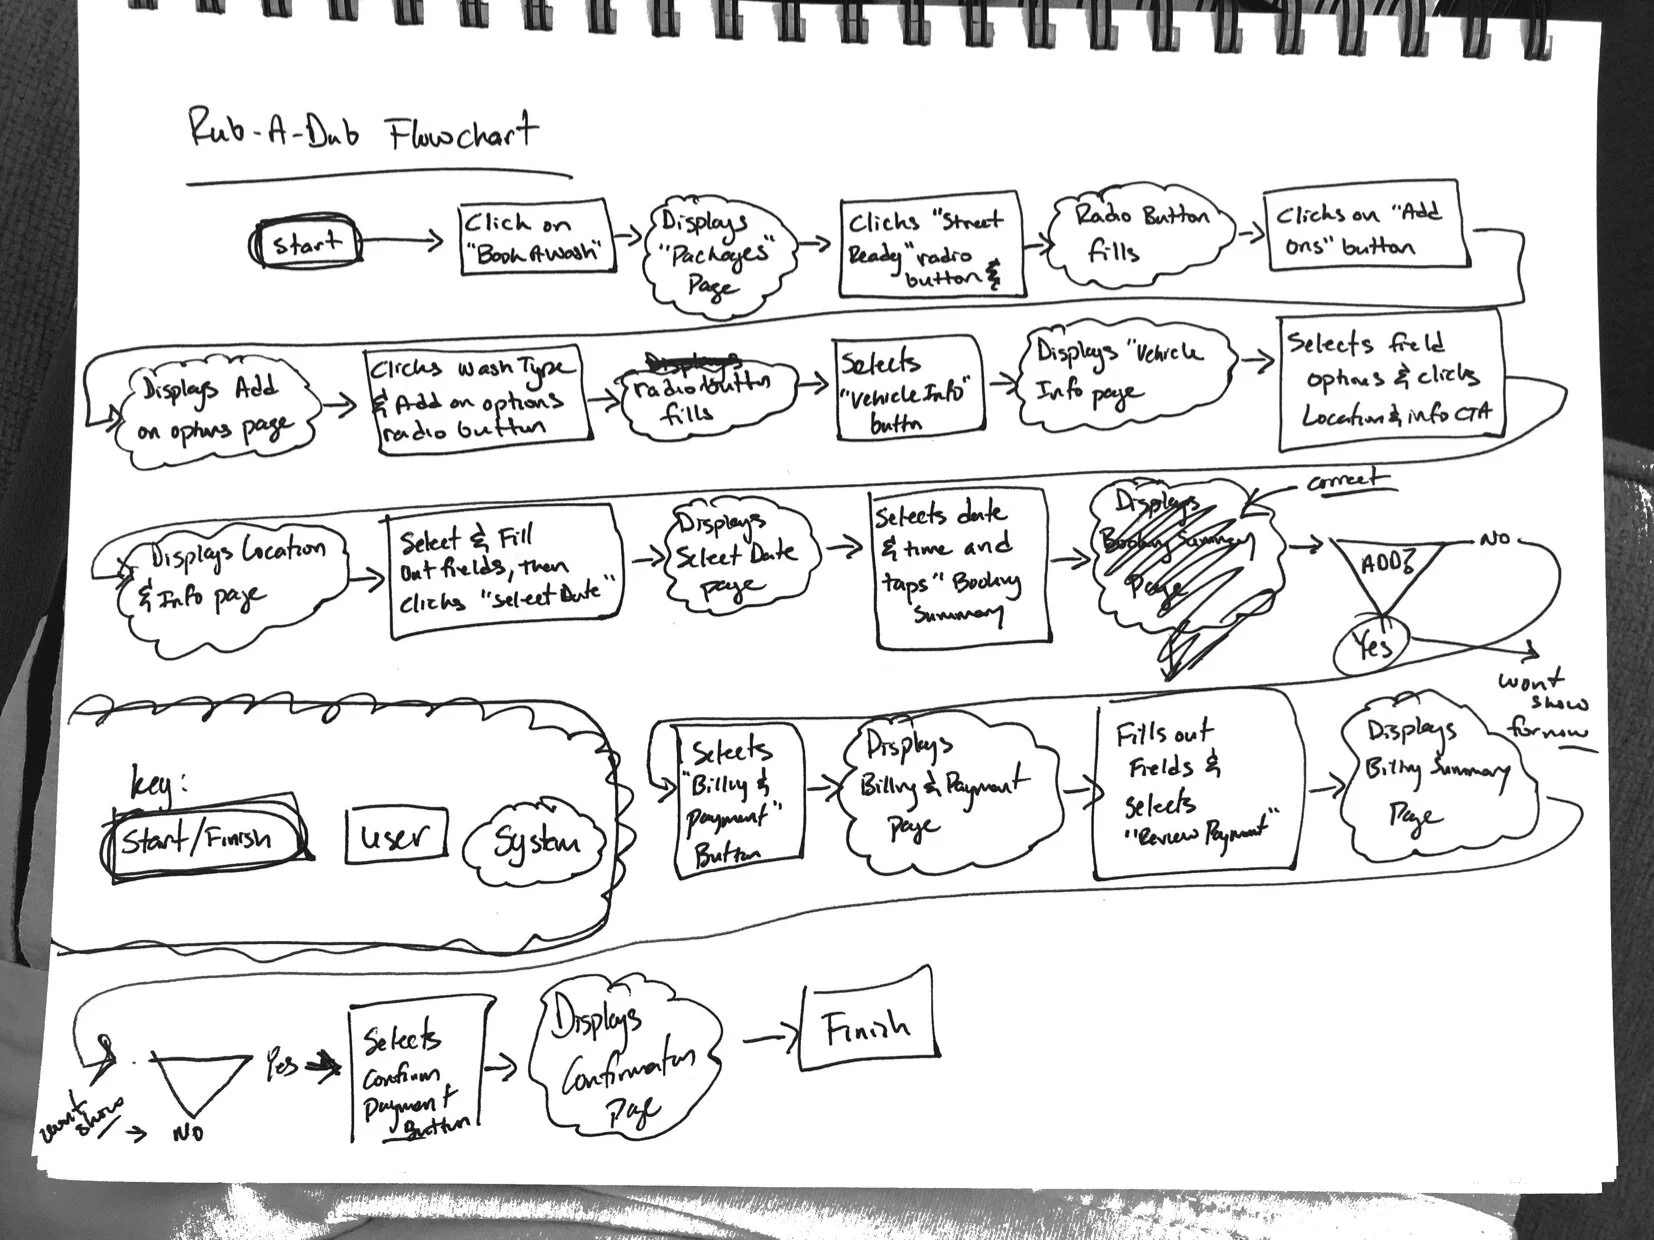 Rub-A-Dub Flowchart
Start
Click on
"Book A Wash"
Displays
"Packages"
Page
Clicks "Street
Ready" radio
button &
Radio Button
fills
Clicks on "Add
Ons" button
Displays Add
on options page
Clicks Wash Type
& Add on options
radio button
Displays
radio button
fills
Selects
"Vehicle Info"
buttn
Displays "Vehicle
Info page
Selects field
options & clicks
Location & info CTA
Displays Location
& Info page
Select & Fill
Out fields, then
clicks "Select Date"
Displays
Select Date
page
Selects date
& time and
taps "Booking
Summary
Displays
Booking Summary
Page
correct
ADD?
NO
Yes
wont
show
for now
key:
Start/Finish
user
System
Selects
"Billing &
Payment"
Button
Displays
Billing & Payment
Page
Fills out
Fields &
Selects
"Review Payment"
Displays
Billing Summary
Page
Yes
wont
show
NO
Selects
Confirm
Payment
Button
Displays
Confirmation
Page
Finish